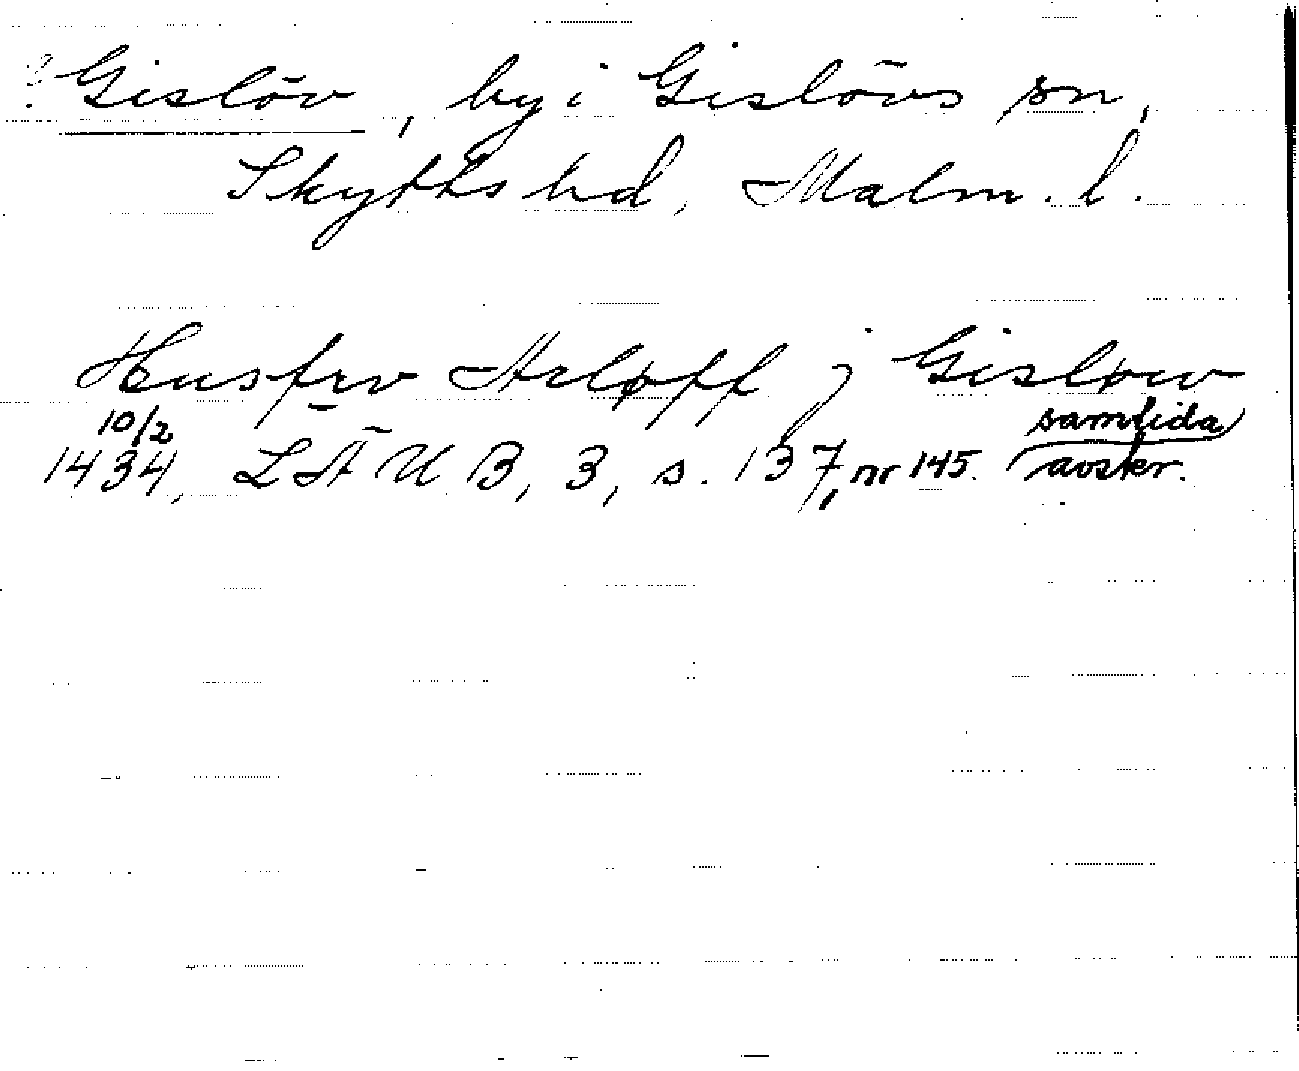 ? Gislöv, by i Gislövs sn,
Skytts hd, Malm. l.
Husfrv Arløff j Gisløw
10/2 samtida
1434, LÄUB, 3, s. 137, nr 145. avskr.